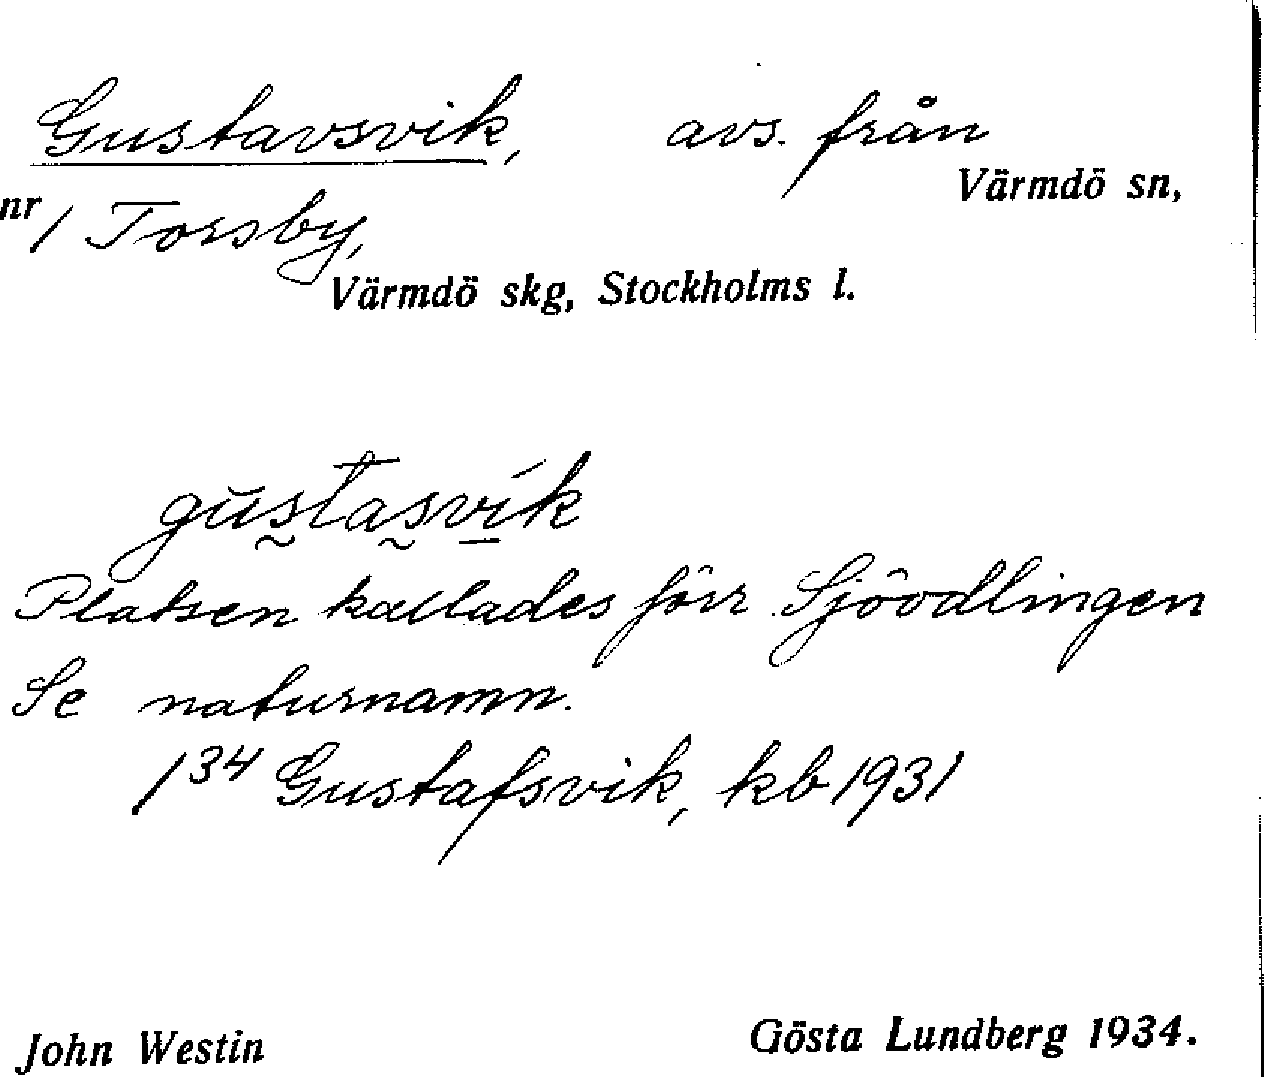 Gustavsvik, avs. från
Värmdö sn,
nr 1 Torsby,
Värmdö skg, Stockholms l.
gŭstasvik
Platsen kallades förr Sjöodlingen
Se naturnamn.
1³⁴ Gustafsvik, kb 1931
John Westin Gösta Lundberg 1934.